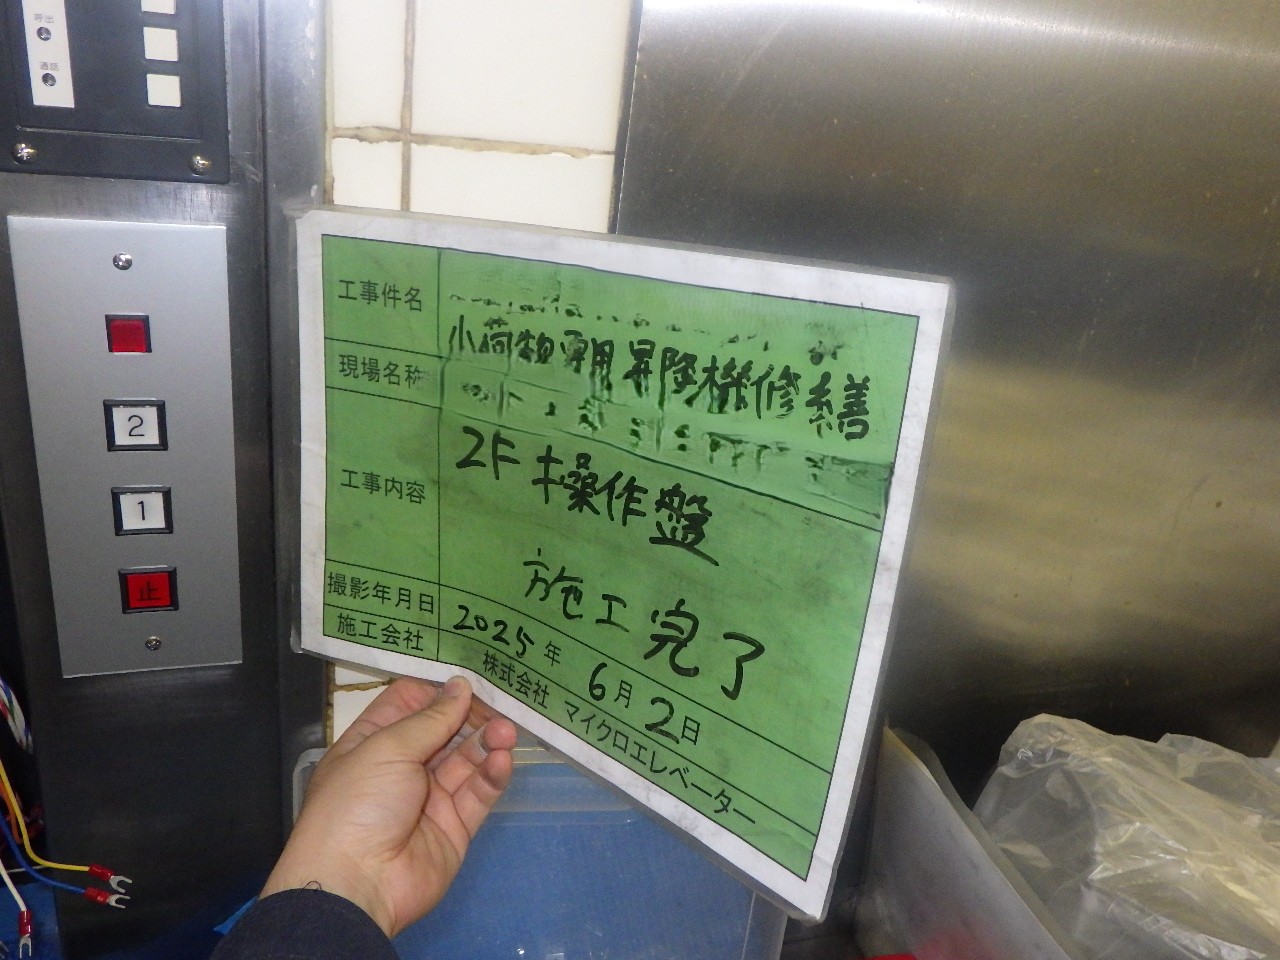 呼出
通話
2
1
止
工事件名
小荷物専用昇降機修繕
現場名称
工事内容
2F 操作盤
施工完了
撮影年月日
2025年 6月 2日
施工会社
株式会社 マイクロエレベーター